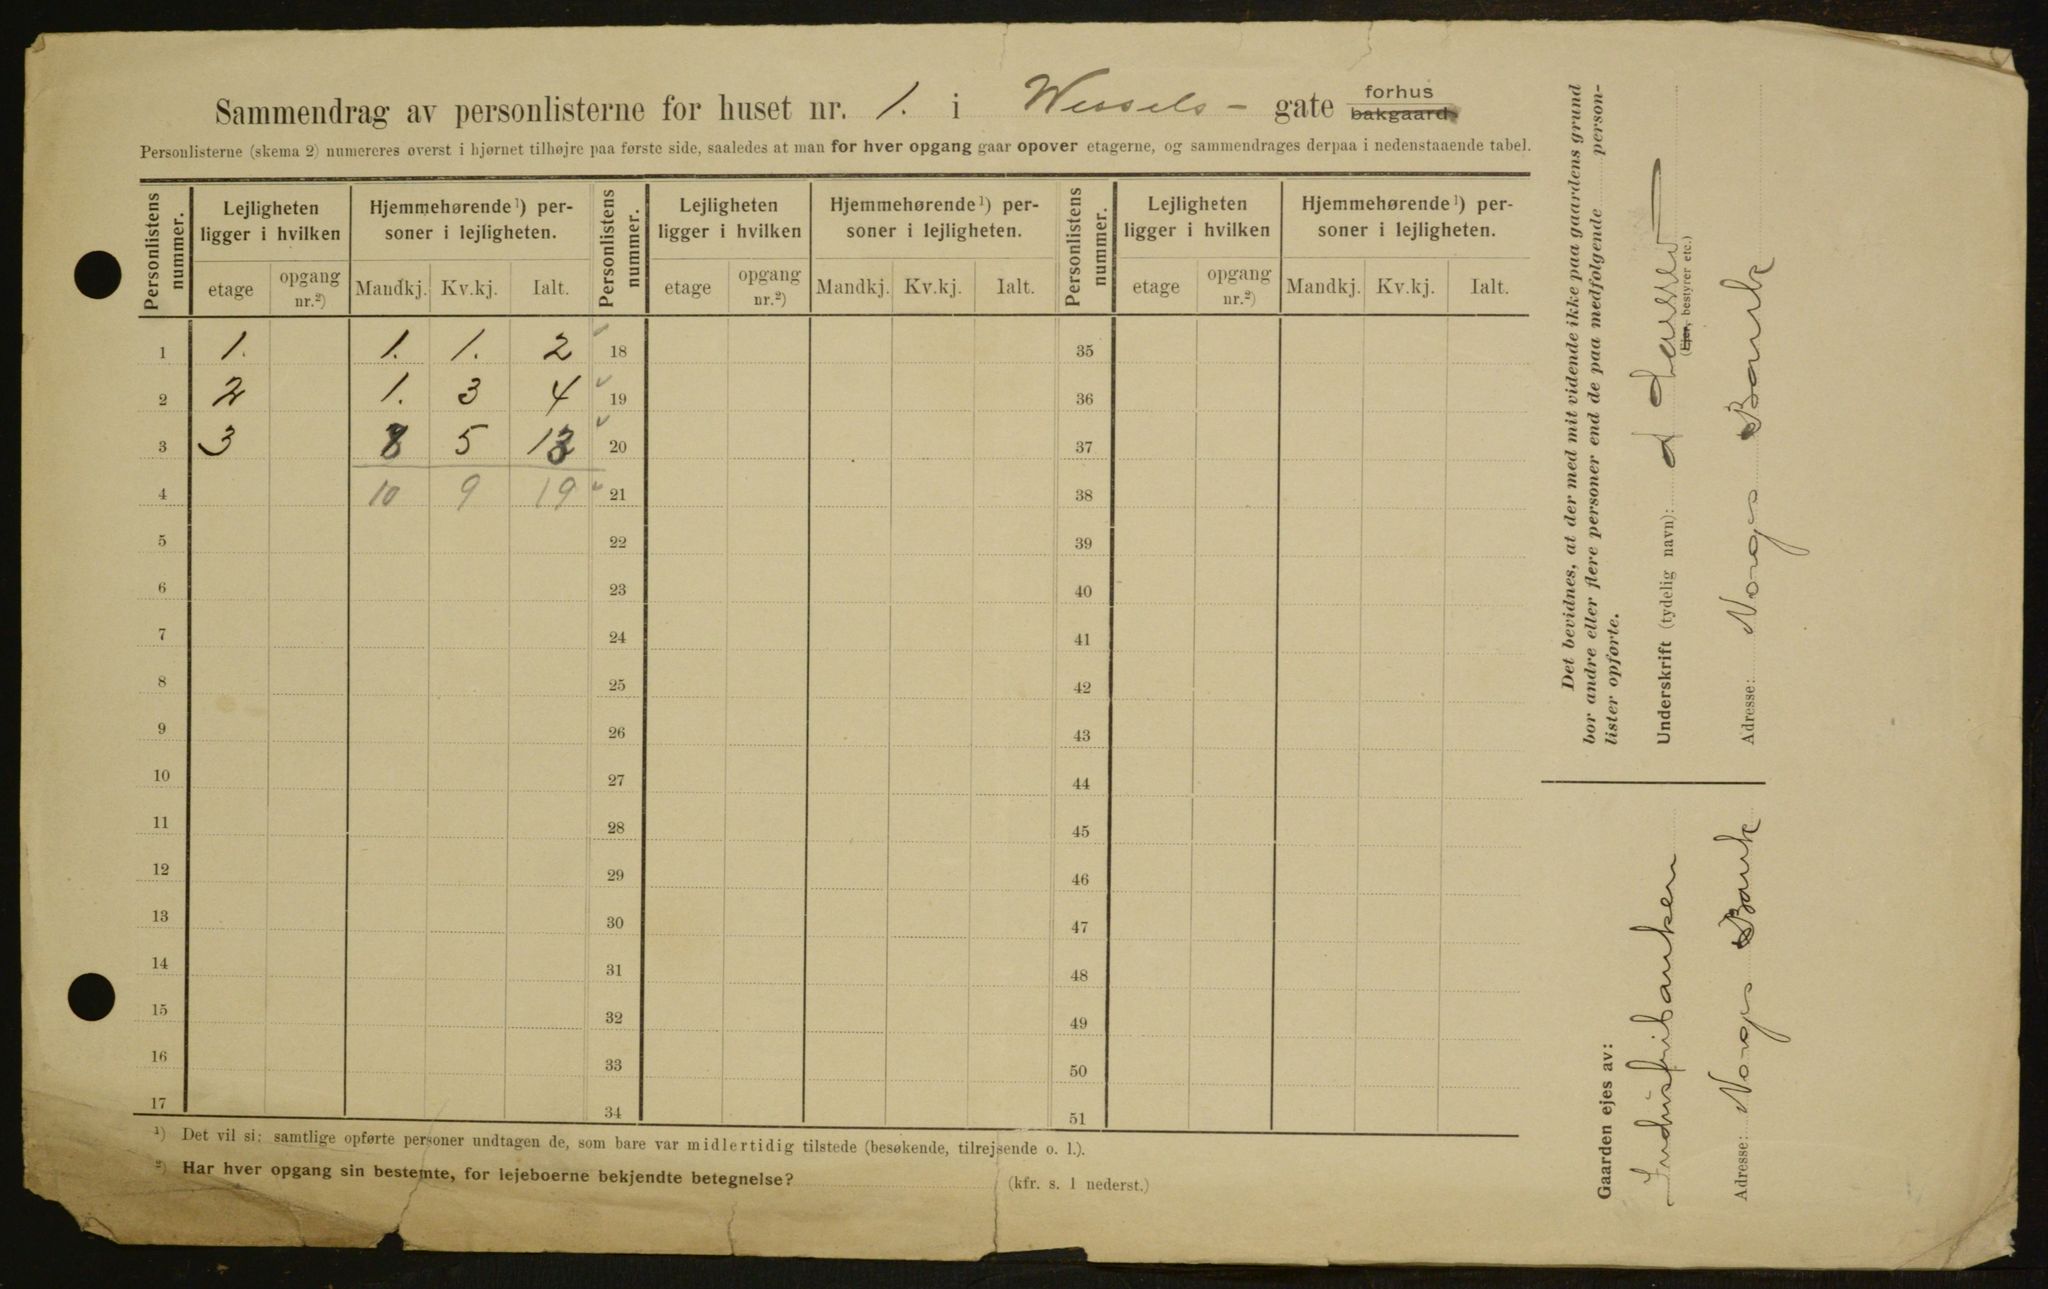 Sammendrag av personlisterne for huset nr. 1. i Wessels- gate forhus bakgaard.
Personlisterne (skema 2) numereres øverst i hjørnet tilhøjre paa første side, saaledes at man for hver opgang gaar opover etagerne, og sammendrages derpaa i nedenstaaende tabel.
Personlistens nummer. Lejligheten ligger i hvilken Hjemmehørende ¹) personer i lejligheten. Personlistens nummer. Lejligheten ligger i hvilken Hjemmehørende ¹) personer i lejligheten. Personlistens nummer. Lejligheten ligger i hvilken Hjemmehørende ¹) personer i lejligheten.
etage opgang nr.²) Mandkj. Kv.kj. Ialt. etage opgang nr.²) Mandkj. Kv.kj. Ialt. etage opgang nr.²) Mandkj. Kv.kj. Ialt.
1 1. 1. 1. 2 18 35
2 2 1. 3 4 19 36
3 3 8 5 13 20 37
4 10 9 19 21 38
5 22 39
6 23 40
7 24 41
8 25 42
9 26 43
10 27 44
11 28 45
12 29 46
13 30 47
14 31 48
15 32 49
16 33 50
17 34 51
¹) Det vil si: samtlige opførte personer undtagen de, som bare var midlertidig tilstede (besøkende, tilrejsende o. l.).
²) Har hver opgang sin bestemte, for lejeboerne bekjendte betegnelse? (kfr. s. 1 nederst.)
Det bevidnes, at der med mit vidende ikke paa gaardens grund
bor andre eller flere personer end de paa medfølgende person-
lister opførte.
Underskrift (tydelig navn):
(Ejer, bestyrer etc.)
Adresse: Norges Bank
Gaarden ejes av:
Industribanken
Adresse: Norges Bank